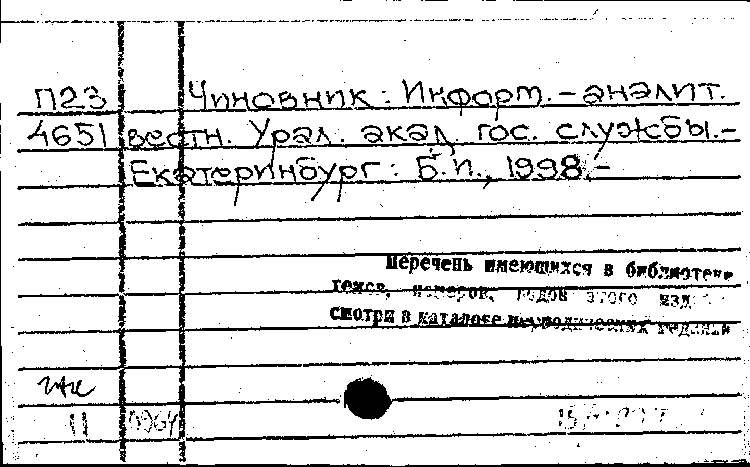 П23 Чиновник: Информ.-аналит.
4651 вестн. Урал. акад. гос. службы.-
Екатеринбург: Б.и., 1998.-
перечень имеющихся в библиотеке
номеров, годов этого
смотри в каталоге периодических
11